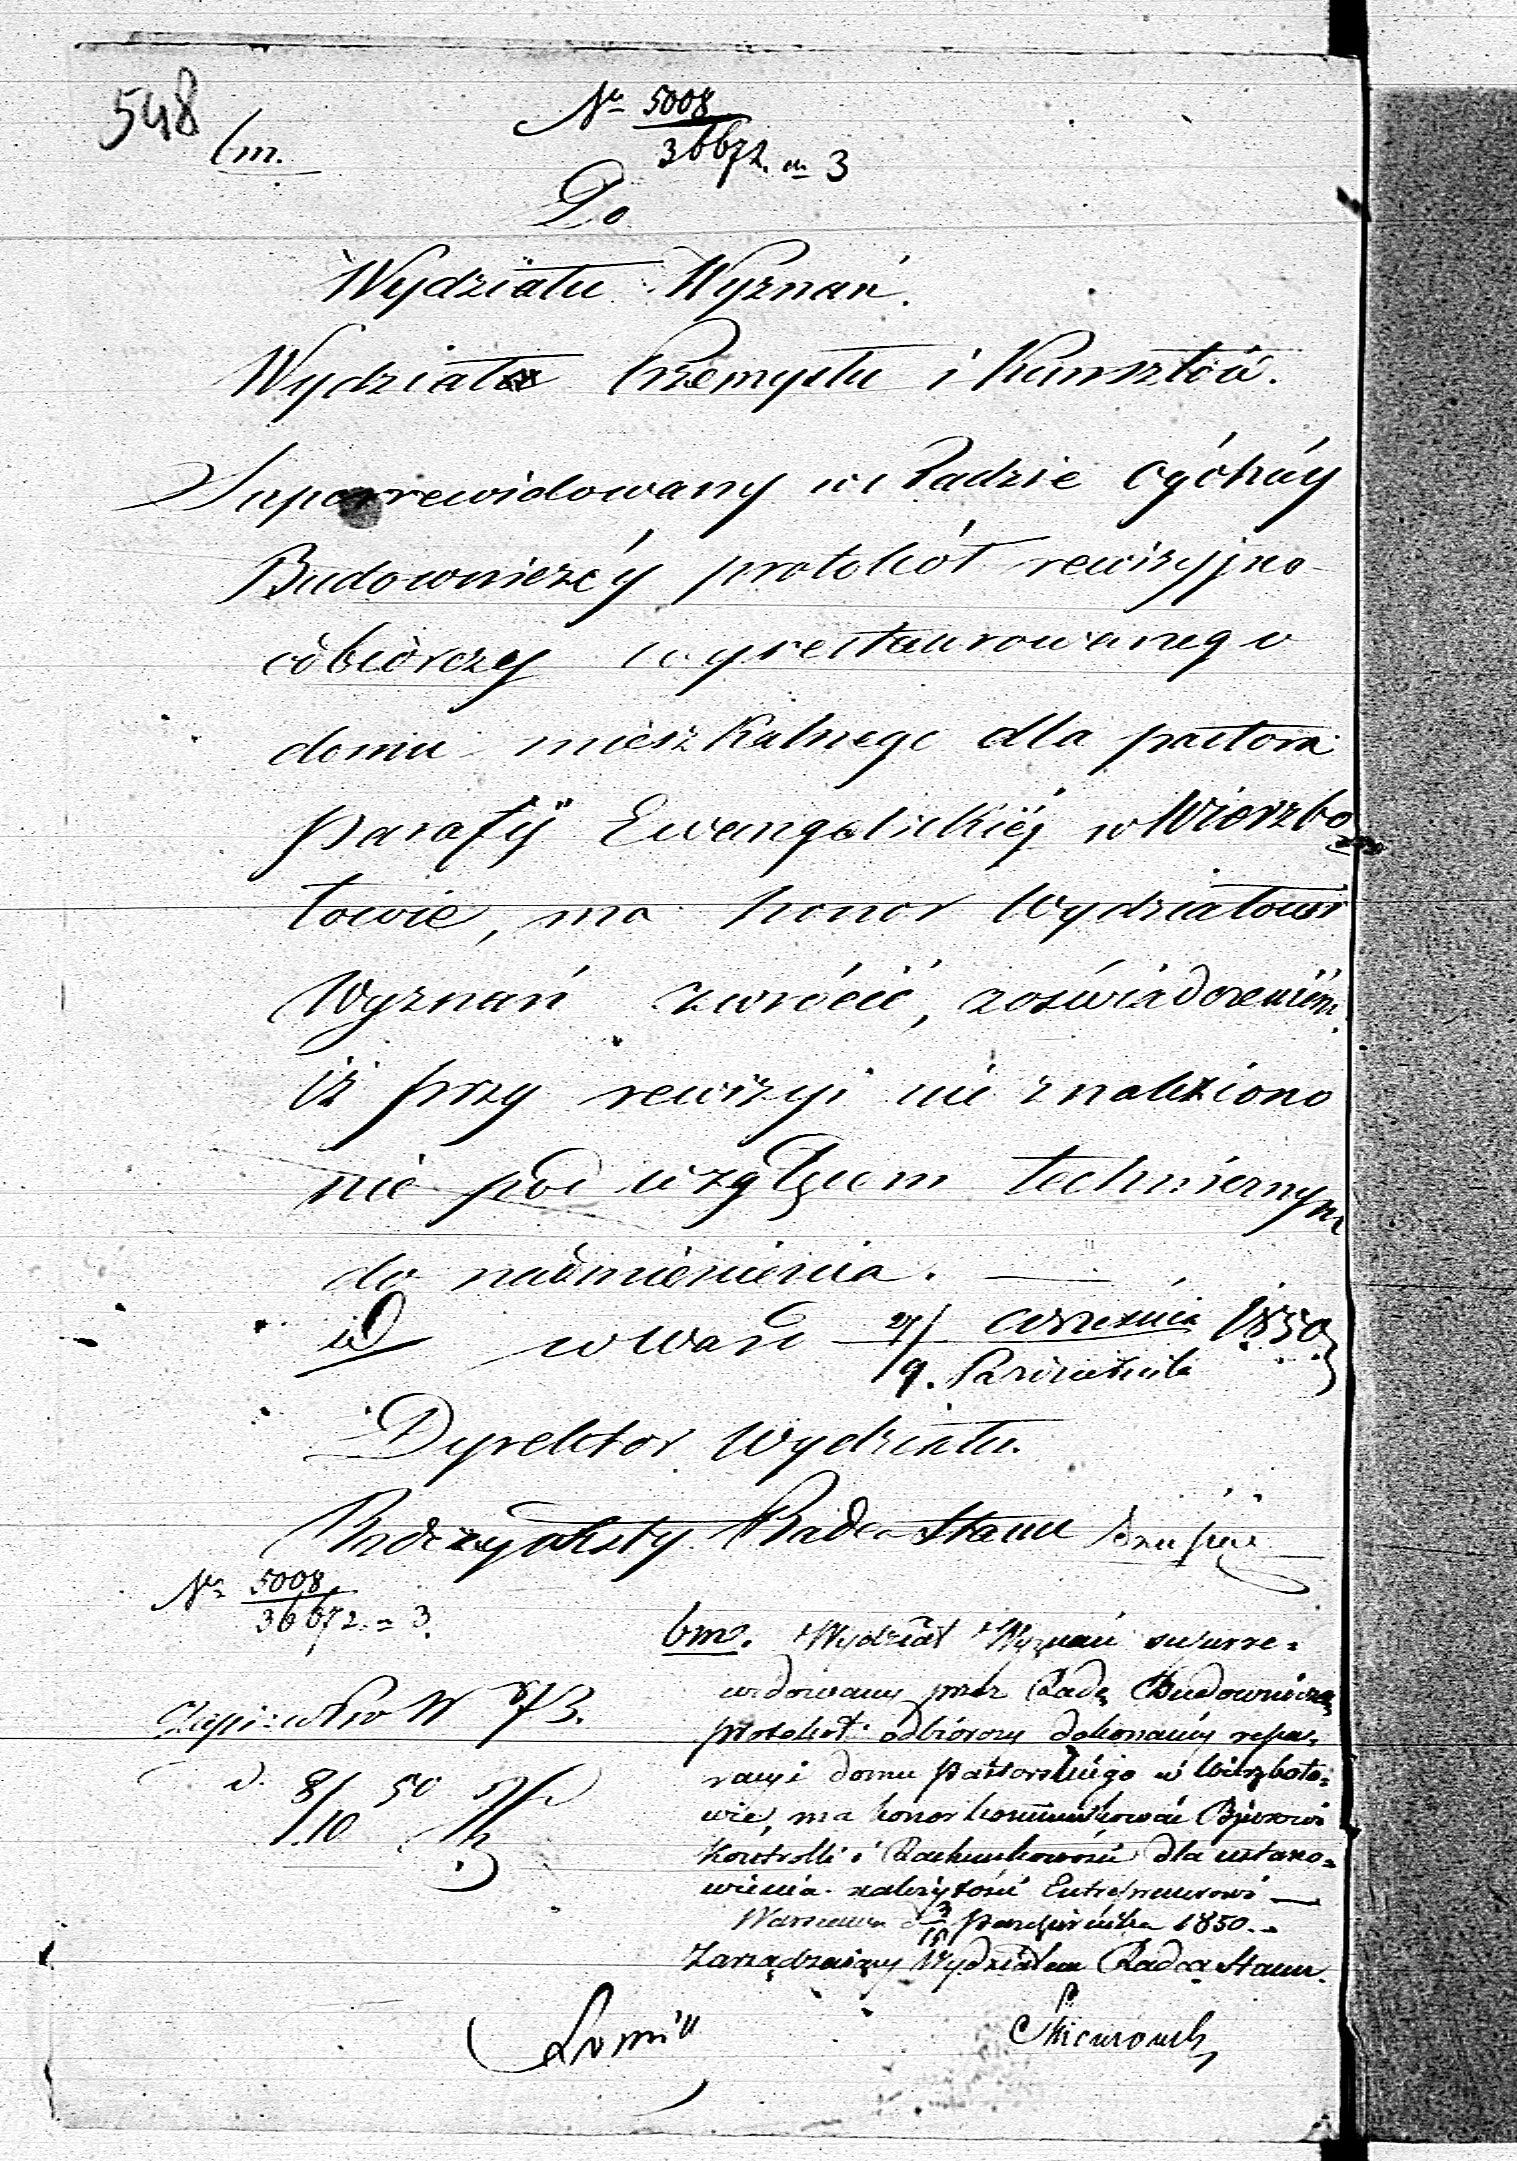 548
bm.
No 5008
36672. 3
Do
Wydziału Wyznań.
Wydział Przemysłu i Kunsztów.
Superrewidowany w Radzie Ogólnéy
Budowniczéy protokół rewizyjno-
odbiorczy wyrestaurowanego
domu mieszkalnego dla pastora
parafij Ewangelickiéj w Wierzbo
łowie, ma honor Wydziałowi
Wyznań zwrócić, z oświadczeniem
iż przy rewizyi nie znaleziono
nic pod względem technicznym
do nadmienienia. —
w Warsz 27/ Września 1850
9. Października
Dyrektor Wydziału.
Rzeczywisty Radca Stanu
No 5008
36672. 3.
873.
d. 8/10 50
bm. Wydział Wyznań superre-
widowany przez Radę Budowniczą
protokół odbiorczy dokonanéy repa-
racyi domu pastorskiego w Wierzboło-
wie, ma honor kommunikować Bjurowi
Kontrolli i Rachunkowości dla ustano-
wienia należytości Entreprenerowi —
Warszawa d 3/15 Października 1850.
Zarządzaiący Wydziałem Radca Stanu.